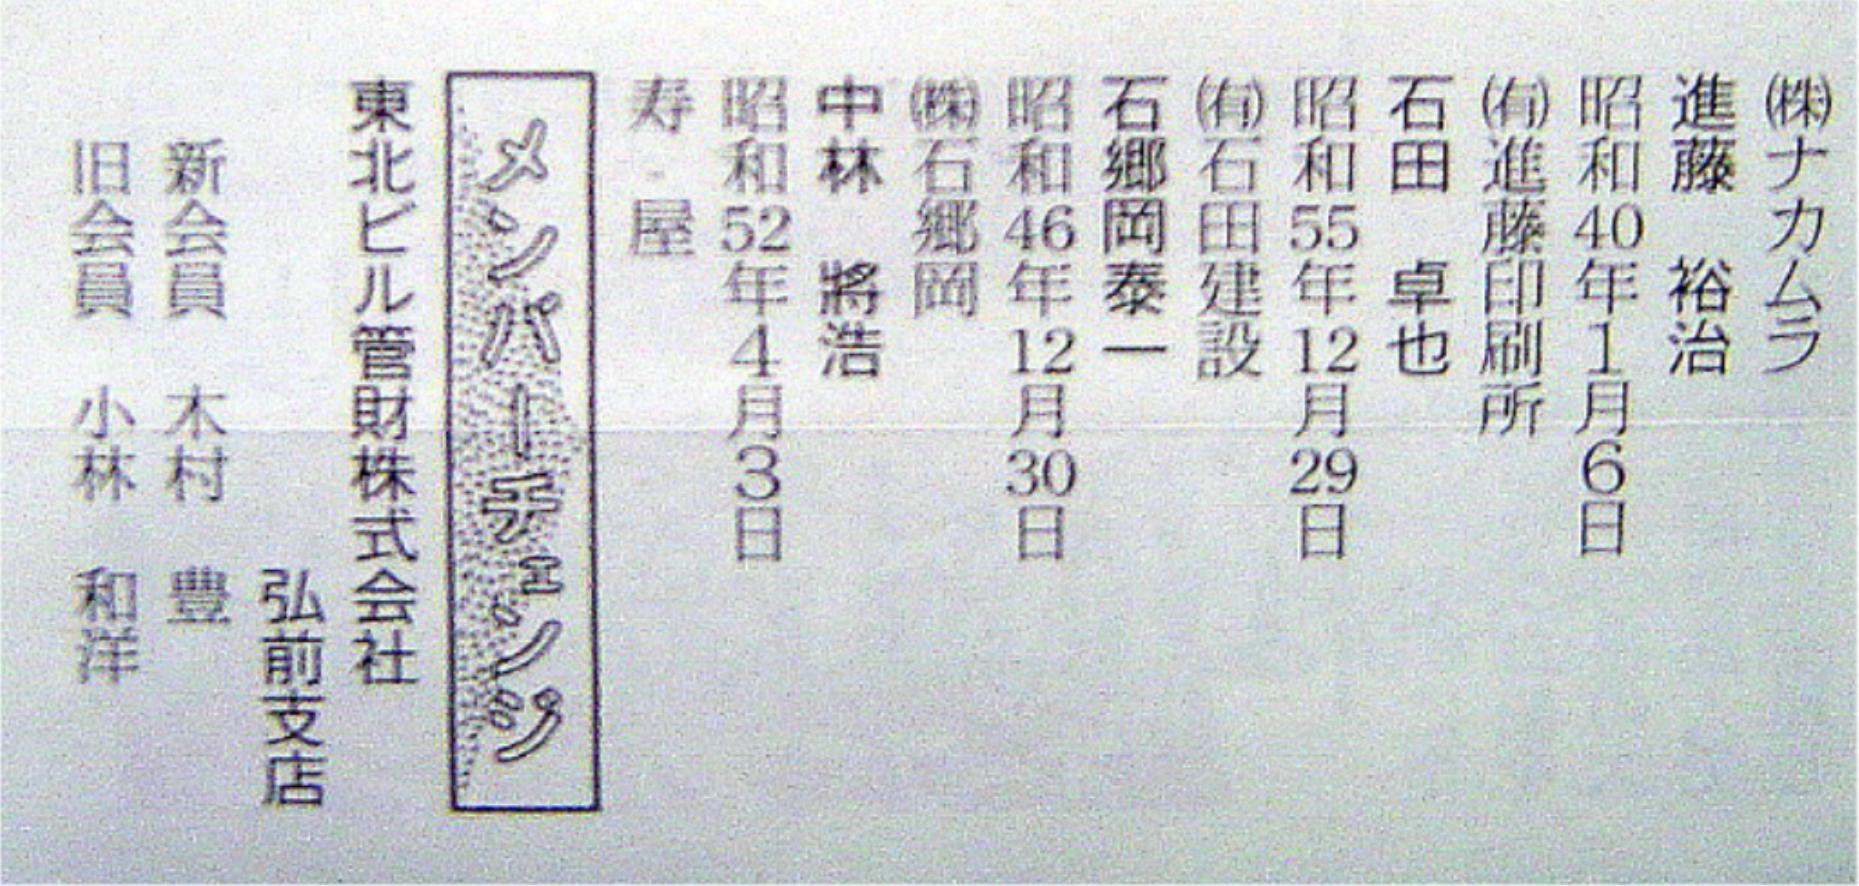 ㈱ナカムラ
進藤 裕治
昭和40年1月6日
㈲進藤印刷所
石田 卓也
昭和55年12月29日
㈲石田建設
石郷岡泰一
昭和46年12月30日
㈱石郷岡
中林 將浩
昭和52年4月3日
寿 屋
メンバーチェンジ
東北ビル管財株式会社
弘前支店
新会員 木村 豊
旧会員 小林 和洋